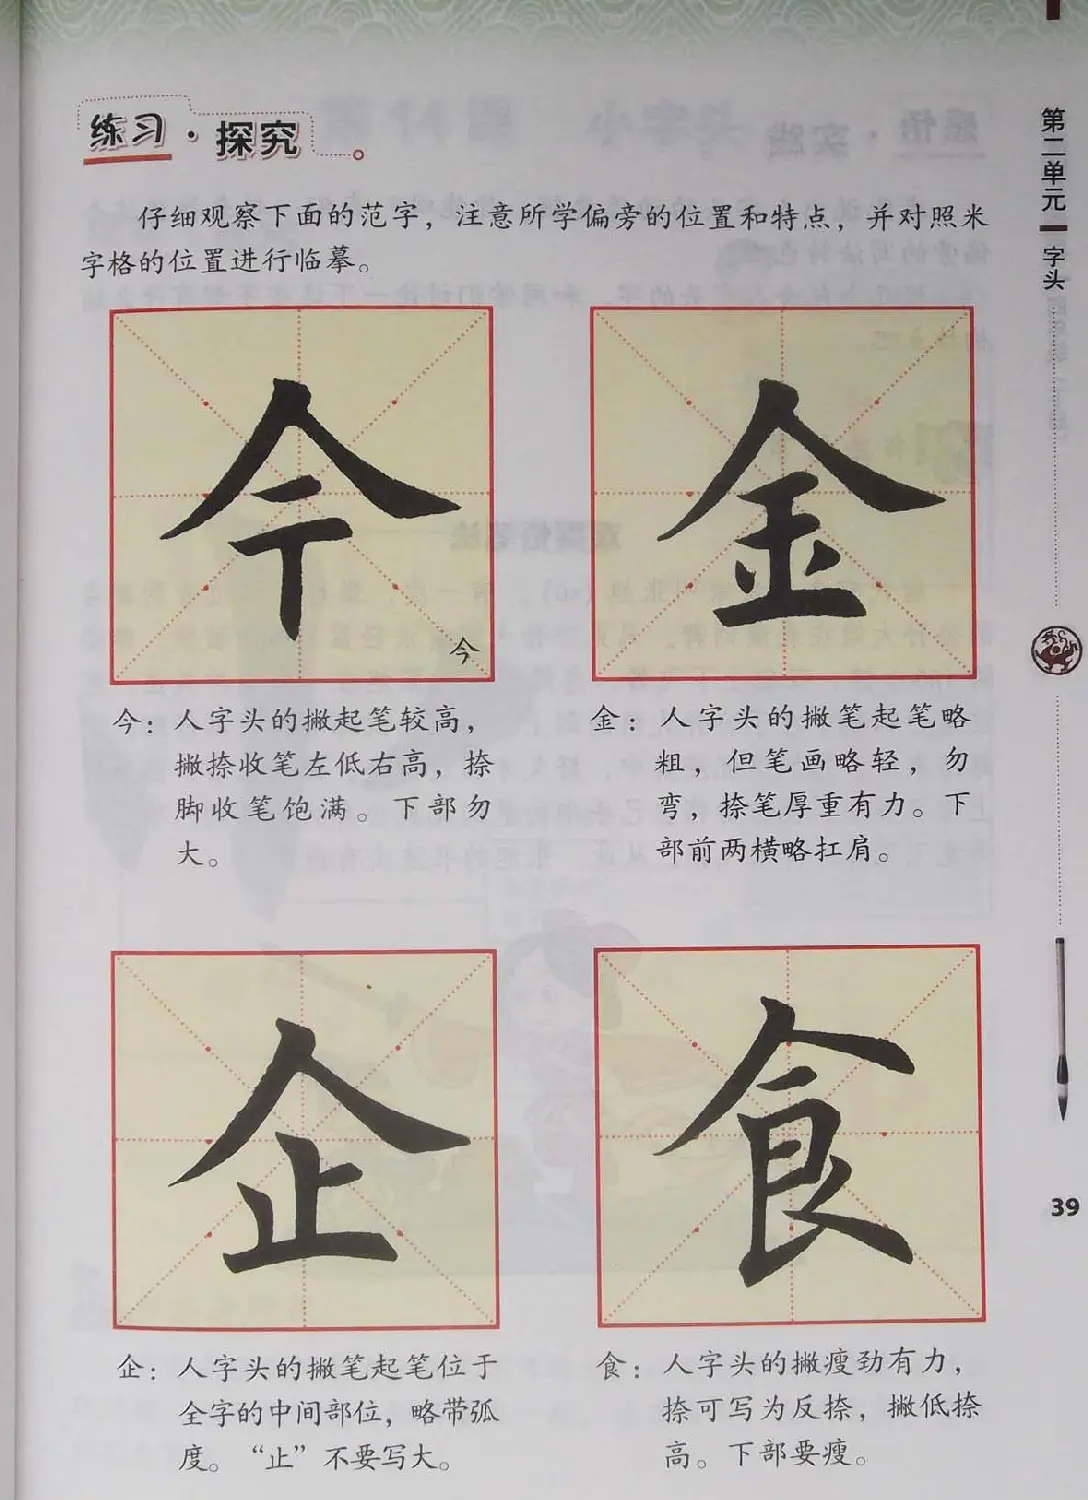 练习·探究
仔细观察下面的范字，注意所学偏旁的位置和特点，并对照米
字格的位置进行临摹。
今
今
今：人字头的撇起笔较高，
撇捺收笔左低右高，捺
脚收笔饱满。下部勿
大。
金
金：人字头的撇笔起笔略
粗，但笔画略轻，勿
弯，捺笔厚重有力。下
部前两横略扛肩。
企
企：人字头的撇笔起笔位于
全字的中间部位，略带弧
度。“止”不要写大。
食
食：人字头的撇瘦劲有力，
捺可写为反捺，撇低捺
高。下部要瘦。
第二单元 字头
39